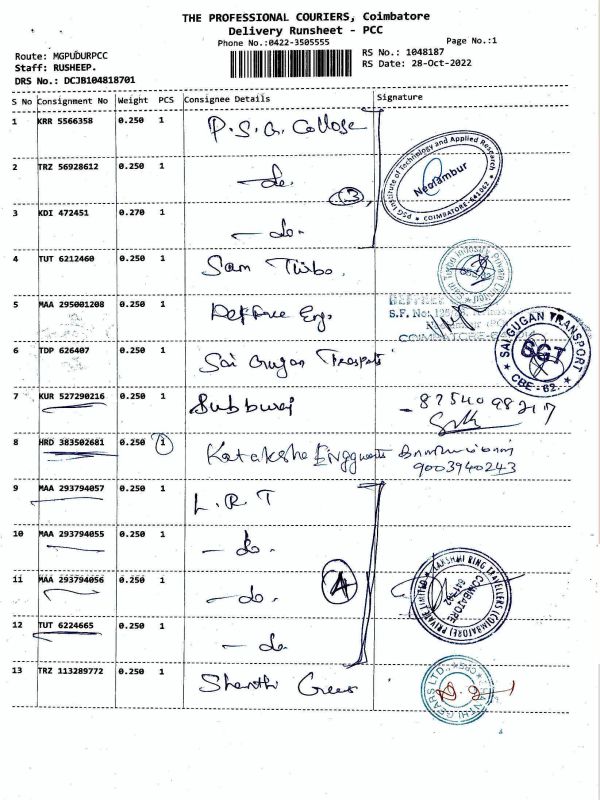 THE PROFESSIONAL COURIERS, Coimbatore
Delivery Runsheet - PCC
Phone No.:0422-3505555
Page No.:1
Route: MGPUDURPCC
Staff: RUSHEEP.
DRS No.: DCJB104818701
RS No.: 1048187
RS Date: 28-Oct-2022
S No Consignment No Weight PCS Consignee Details Signature
1 KRR 5566358 0.250 1 P.S.G. College
2 TRZ 56928612 0.250 1 -do.
3
PSG Institute of Technology and Applied Research
Neelambur
★ COIMBATORE-641062 ★
3 KDI 472451 0.270 1 -do.
4 TUT 6212460 0.250 1 Sam Turbo.
Sam Turbo Industry Private Limited
5 MAA 295001208 0.250 1
S.F. No:
COIMBATORE
6 TDP 626407 0.250 1 Sai Gugan Trasport
SAI GUGAN TRANSPORT
SGT
★ CBE-62. ★
7 KUR 527290216 0.250 1 Subburaj - 8754098217
8 HRD 383502681 0.250 1 Kataksha
9003940243
9 MAA 293794057 0.250 1 L.R.T
10 MAA 293794055 0.250 1 -do.
11 MAA 293794056 0.250 1 -do.
4
LAKSHMI RING TRAVELLERS (COIMBATORE) PRIVATE LIMITED ★
COIMBATORE
12 TUT 6224665 0.250 1 -do
13 TRZ 113289772 0.250 1 Shanthi Gears
SHANTHI GEARS LTD.,